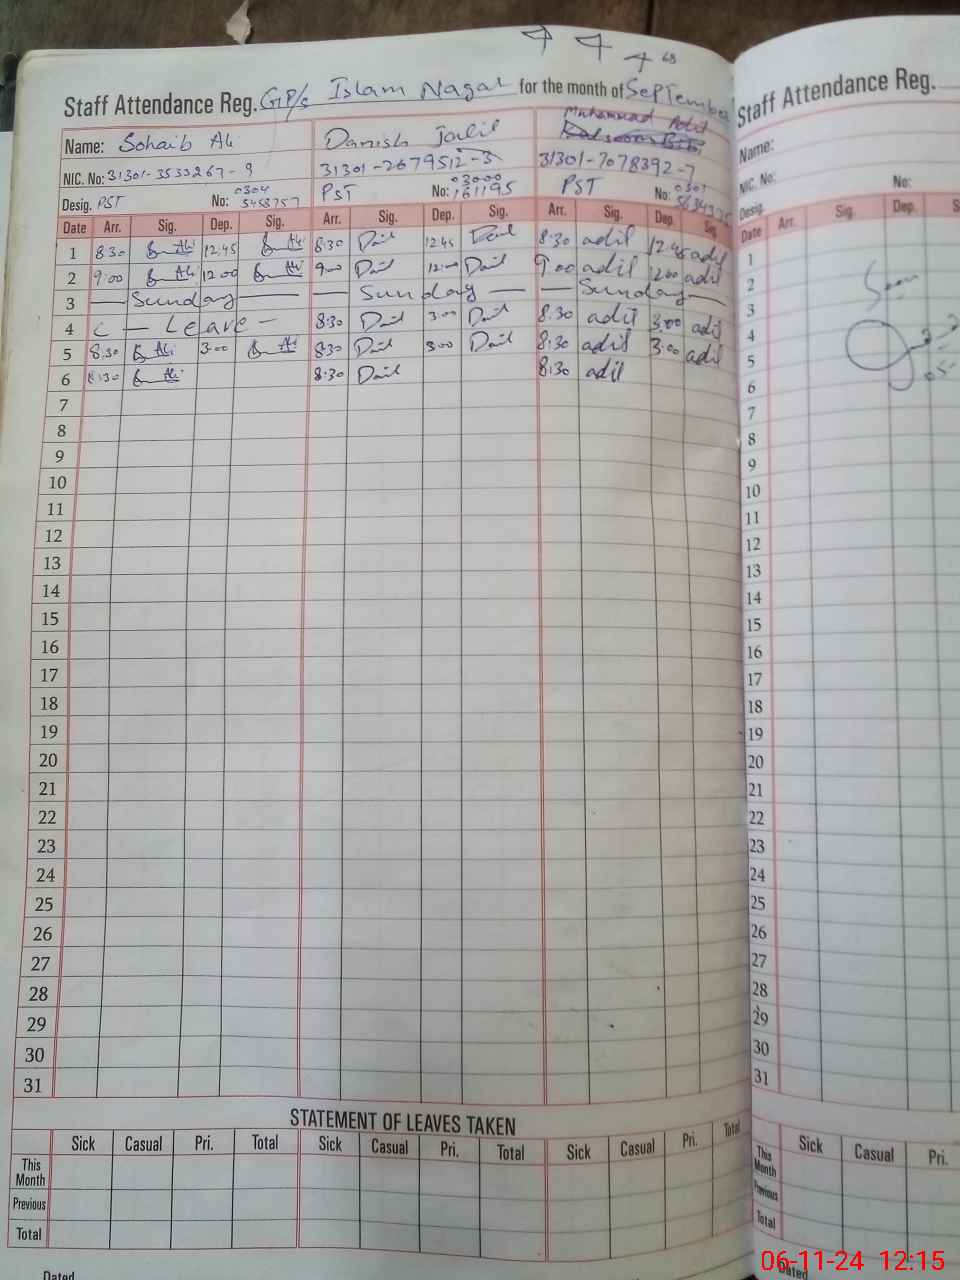 Staff Attendance Reg. GP/s Islam Nagar for the month of September
Name: Sohaib Ali Danish Jalil Muhammad Adil
NIC. No: 31301-3533267-9 31301-2679512-3 31301-7078392-7
Desig. PST No: 0304 5458757 PST No: 03000 161195 PST No: 0301
Date Arr. Sig. Dep. Sig. Arr. Sig. Dep. Sig. Arr. Sig. Dep. Sig.
1 8:30 Ali 12:45 Ali 8:30 Danil 12:45 Danil 8:30 adil 12:45 adil
2 9:00 Ali 12:00 Ali 9:00 Danil 12:00 Danil 9:00 adil 12:00 adil
3 — Sunday — — Sunday — — Sunday —
4 C — Leave — 8:30 Danil 3:00 Danil 8:30 adil 3:00 adil
5 8:30 Ali 3:00 Ali 8:30 Danil 3:00 Danil 8:30 adil 3:00 adil
6 8:30 Ali 8:30 Danil 8:30 adil
7
8
9
10
11
12
13
14
15
16
17
18
19
20
21
22
23
24
25
26
27
28
29
30
31
STATEMENT OF LEAVES TAKEN
Sick Casual Pri. Total Sick Casual Pri. Total Sick Casual Pri. Total
This Month
Previous
Total
Dated
Staff Attendance Reg.
Name:
NIC. No:
Desig. No:
Date Arr. Sig. Dep. S
1
2
3
4
5
6
7
8
9
10
11
12
13
14
15
16
17
18
19
20
21
22
23
24
25
26
27
28
29
30
31
Sick Casual Pri.
This Month
Previous
Total
Dated
06-11-24 12:15